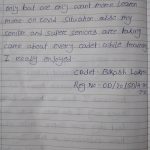 only but are only want more learn
more on cool situation also my
senior and super seniors are taking
care about every cadet able training
I really enjoyed
Cadet - Bikash
Reg No - OD/